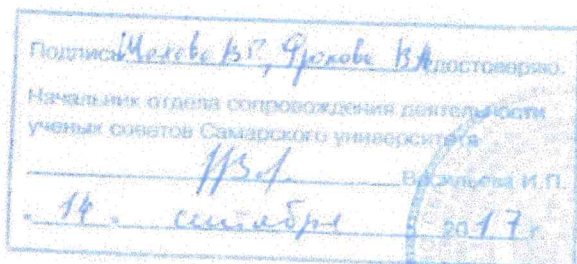 Подпись Шахова В.Г., Фролова В.А. удостоверяю.
Начальник отдела сопровождения деятельности
ученых советов Самарского университета
Васильева И.П.
« 14 » сентября 2017 г.